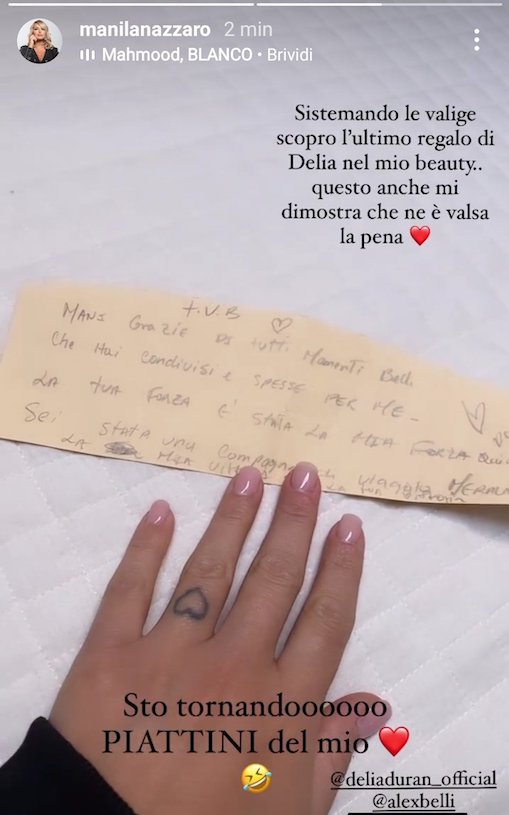 manilanazzaro 2 min
Mahmood, BLANCO • Brividi
Sistemando le valige
scopro l’ultimo regalo di
Delia nel mio beauty..
questo anche mi
dimostra che ne è valsa
la pena ❤️
T.V.B
MANI Grazie DI TUTTI Momenti Belli
Che Hai condivisi e SPESSE PER ME-
LA TUA FORZA E' STATA LA MIA FORZA QUI
Sei STATA UNA Compagna viaggio
LA MIA
Sto tornandoooooo
PIATTINI del mio ❤️
🤣
@deliaduran_official
@alexbelli